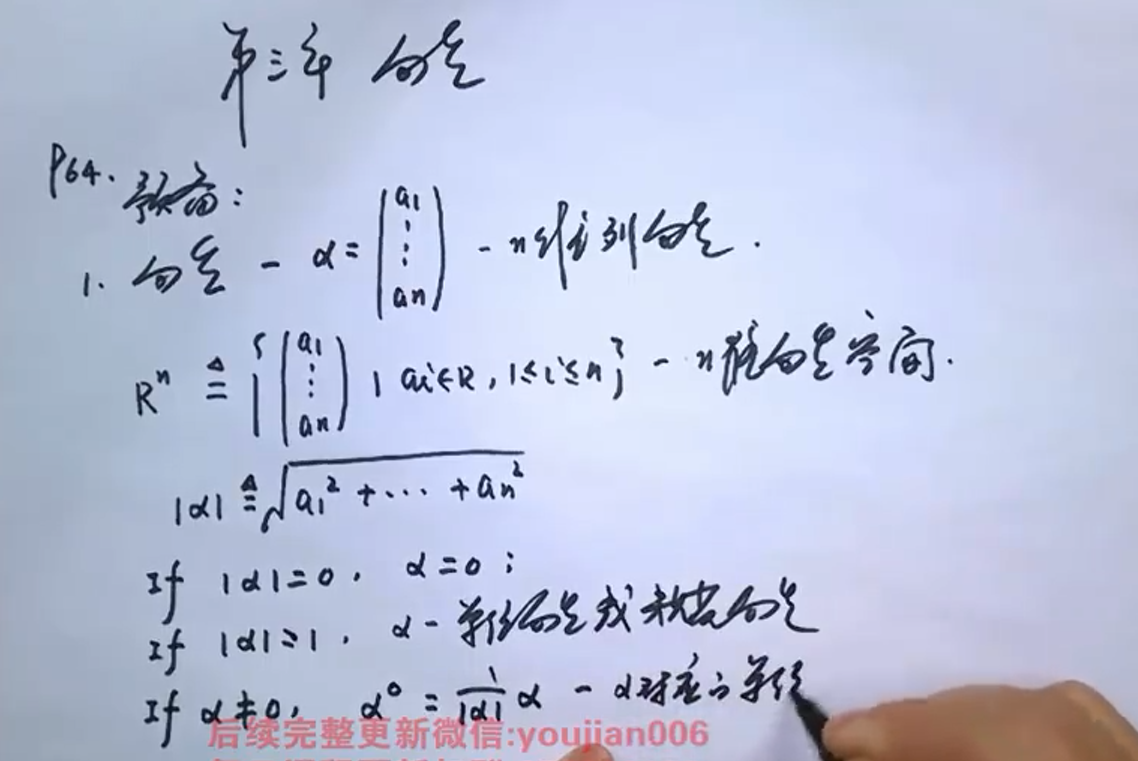 第三章 向量
P64. 预备:
1. 向量 - α = (a1 ⋮ an) - n维列向量.
R^n ≜ { (a1 ⋮ an) | ai∈R, 1≤i≤n } - n维向量空间.
|α| ≜ √(a1² + ⋯ + an²)
If |α|=0, α=0;
If |α|=1, α - 单位向量或规范向量
If α≠0, α° = 1/|α| α - α对应的单位
后续完整更新微信:youjian006